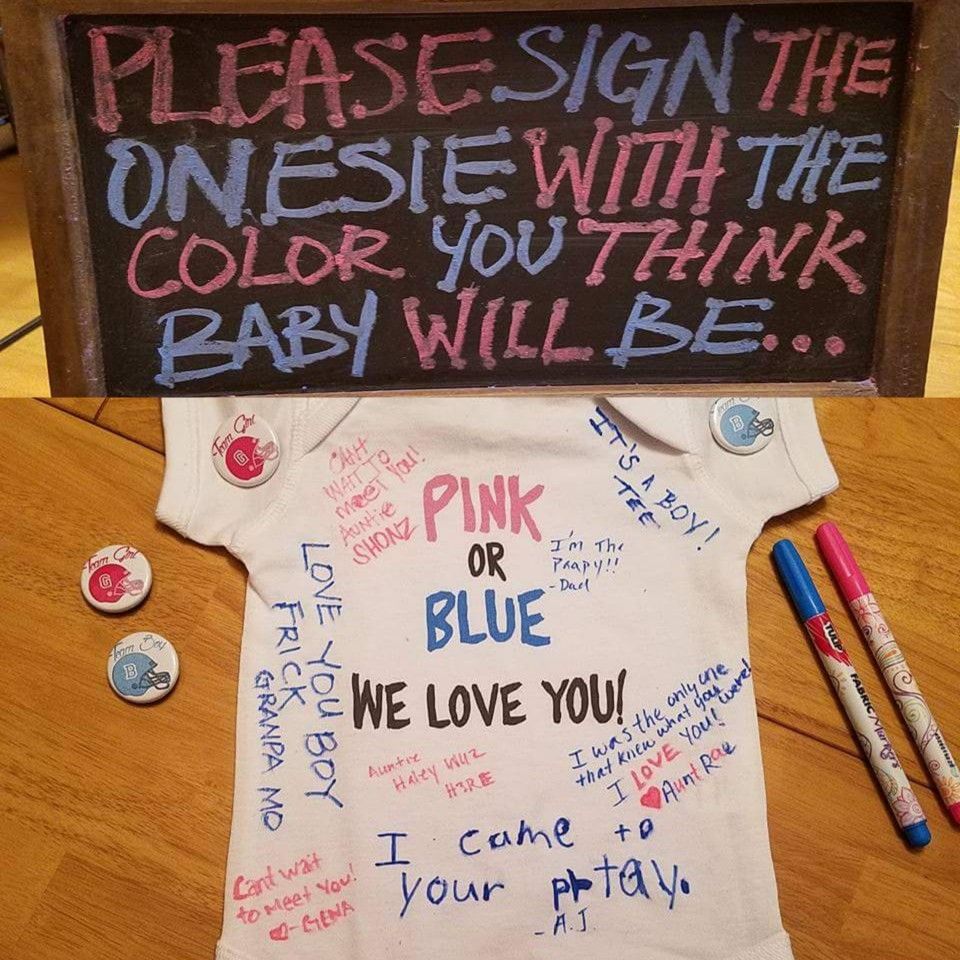 PLEASE SIGN THE
ONESIE WITH THE
COLOR YOU THINK
BABY WILL BE...
Team Girl
G
B
CAN'T
WAIT TO
MEET YOU!
AUNTIE
SHONZ
PINK
OR
BLUE
WE LOVE YOU!
IT'S A BOY!
TEE
I'm The
Paapy!!
- Dad
Team Girl
G
Team Boy
B
LOVE YOU BOY
FRICK
GRANPA MO
Auntie
Haley WUZ
H3RE
I was the only one
that knew what you were!
I LOVE YOU!
Aunt Rae
I came to
your ptay.
- A.J.
Cant wait
to meet you!
- GENA
FABRIC Markers